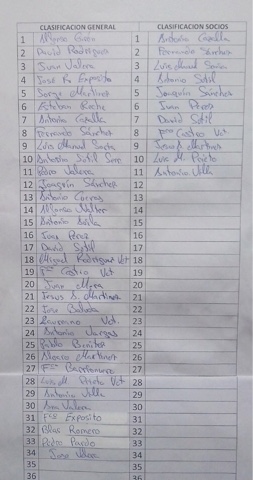 CLASIFICACION GENERAL CLASIFICACION SOCIOS
1 Alfonso 1 Antonio Casella
2 David Rodriguez 2 Fernando Sánchez
3 Juan Valera 3 Luis Manuel
4 José Exposito 4 Antonio Sotil
5 Jorge Martinez 5 Joaquín Sánchez
6 Esteban Roche 6 Juan Pérez
7 Antonio Casella 7 David Sotil
8 Fernando Sánchez 8 Castro Vet
9 Luis Manuel 9 Martinez
10 Antonio Sotil 10 Luis M. Prieto
11 Valera 11 Antonio Villa
12 Joaquín Sánchez 12
13 Antonio Cuevas 13
14 Alfonso 14
15 Antonio 15
16 Juan Pérez 16
17 David Sotil 17
18 Miguel Rodriguez Vet 18
19 Castro Vet 19
20 Juan Mora 20
21 Jesus S. Martinez 21
22 Jose 22
23 Laureano Vet 23
24 Antonio Vargas 24
25 Pablo Benitez 25
26 Alonso Martinez 26
27 27
28 Luis M. Prieto Vet 28
29 Antonio Villa 29
30 Ana Valera 30
31 Exposito 31
32 Blas Romero 32
33 Pedro Pardo 33
34 Jose 34
35 35
36 36